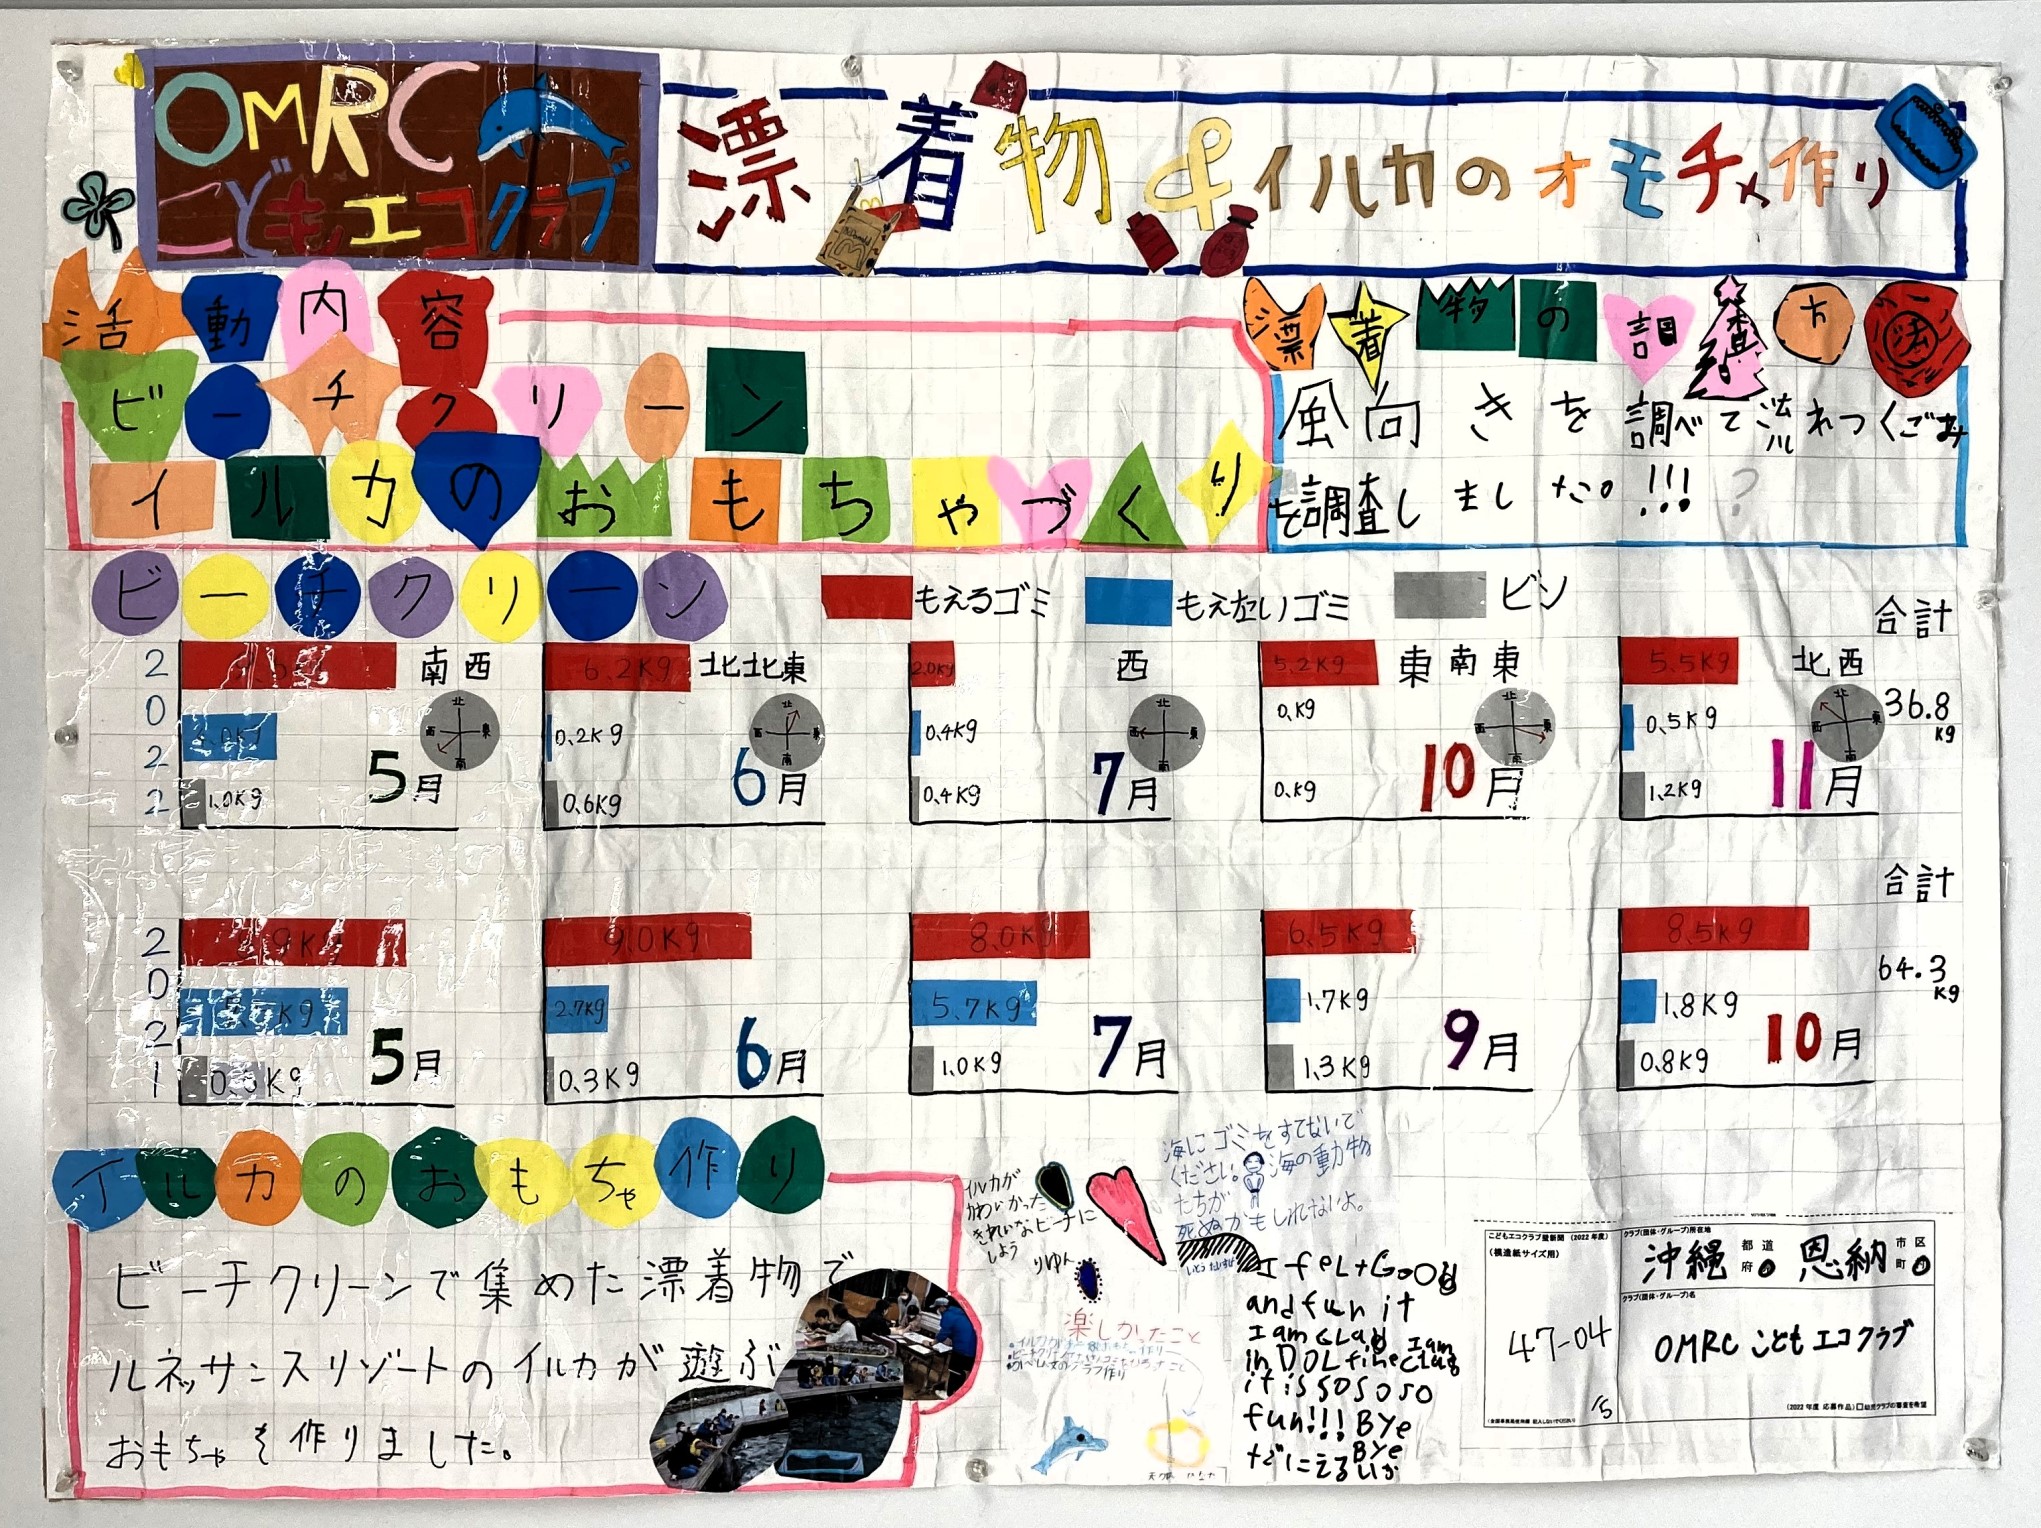 OMRC
こどもエコクラブ
漂着物&イルカのオモチャ作り
活動内容
ビーチクリーン
イルカのおもちゃづくり
漂着物の調査方法
風向きを調べて流れつくごみ
を調査しました。!!!?
ビーチクリーン
もえるゴミ
もえないゴミ
ビン
合計
2022
南西
1.0Kg
5月
6.2Kg
北北東
0.2Kg
0.6Kg
6月
2.0Kg
西
0.4Kg
0.4Kg
7月
5.2Kg
東南東
0.Kg
0.Kg
10月
5.5Kg
北西
0.5Kg
1.2Kg
11月
36.8
Kg
北
西 東
南
合計
2021
5月
9.0Kg
2.7Kg
0.3Kg
6月
8.0Kg
5.7Kg
1.0Kg
7月
6.5Kg
1.7Kg
1.3Kg
9月
8.5Kg
1.8Kg
0.8Kg
10月
64.3
Kg
イルカのおもちゃ作り
ビーチクリーンで集めた漂着物で
ルネッサンスリゾートのイルカが遊ぶ
おもちゃを作りました。
イルカが
かわいかった
きれいなビーチに
しよう
りゆん
海にゴミをすてないで
ください。海の動物
たちが
死ぬかもしれないよ。
楽しかったこと
I feLt GooD
and fun it
I am GLaD I am
in DOLfine CLuB
it is so so so
fun!!! Bye
Bye
こどもエコクラブ壁新聞 (2022年度)
(模造紙サイズ用)
47-04
/5
クラブ(団体・グループ)所在地
沖縄 都道府県 恩納 市区町村
クラブ(団体・グループ)名
OMRCこどもエコクラブ
(2022年度 応募作品)□幼児クラブの審査を希望